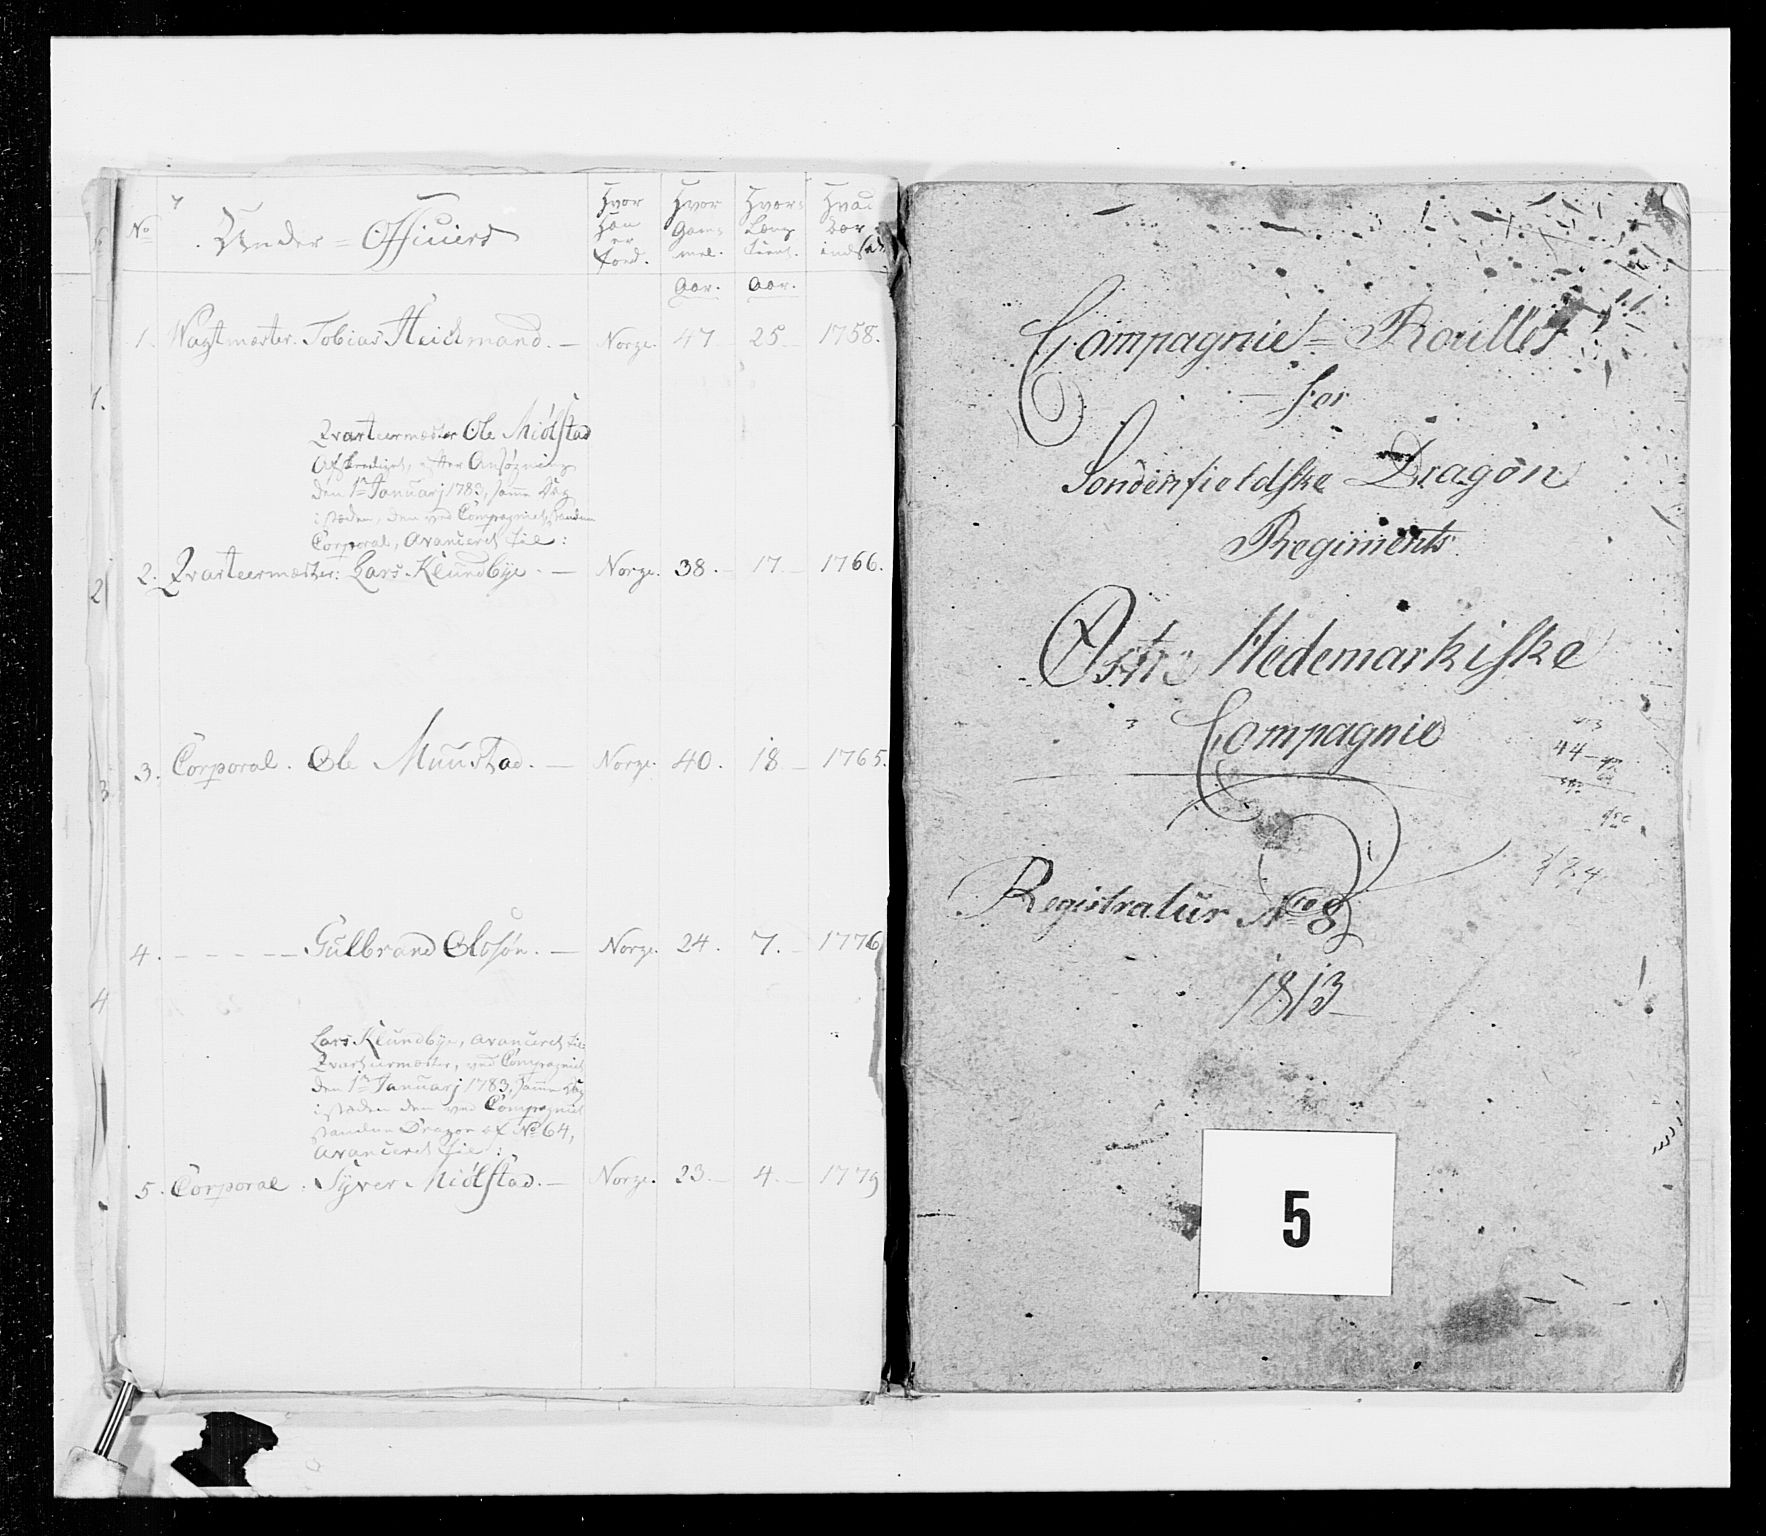 No
Under-Officiers
Hvor han er fød.
Hvor Gammel.
Hvor Længe tient.
Hvad Aar indsat
Aar. Aar.
1. Wagtmæster. Tobias Heidmand. — Norge. 47 25 1758.
1.
Qvarteermæster Ole Miölstad
Afskediget, efter Ansøgning
den 1te Januarj 1783, samme Dag
istæden, den ved Compagniet standne
Corporal, Avanceret til:
2. Qvarteermæster: Lars Klundbye. — Norge. 38. 17. 1766.
2
3. Corporal. Ole Muustad. — Norge. 40. 18 1765.
3
4. — — — — — Gulbrand Olssøn. — Norge. 24. 7. 1776
4
Lars Klundbye, Avanceret til
Qvarteermæster, ved Compagniet
den 1te Januarj 1783, samme Dag
istæden den ved Compagniet
standne Dragon af No 64,
Avanceret til:
5. Corporal. Syver Miölstad. — Norge. 23. 4. 1779
Compagnie-Roulles
for
Søndenfieldske Dragon
Regiments
Østre Hedemarkiske
Compagnie
44
Registratur No 8
1813
5